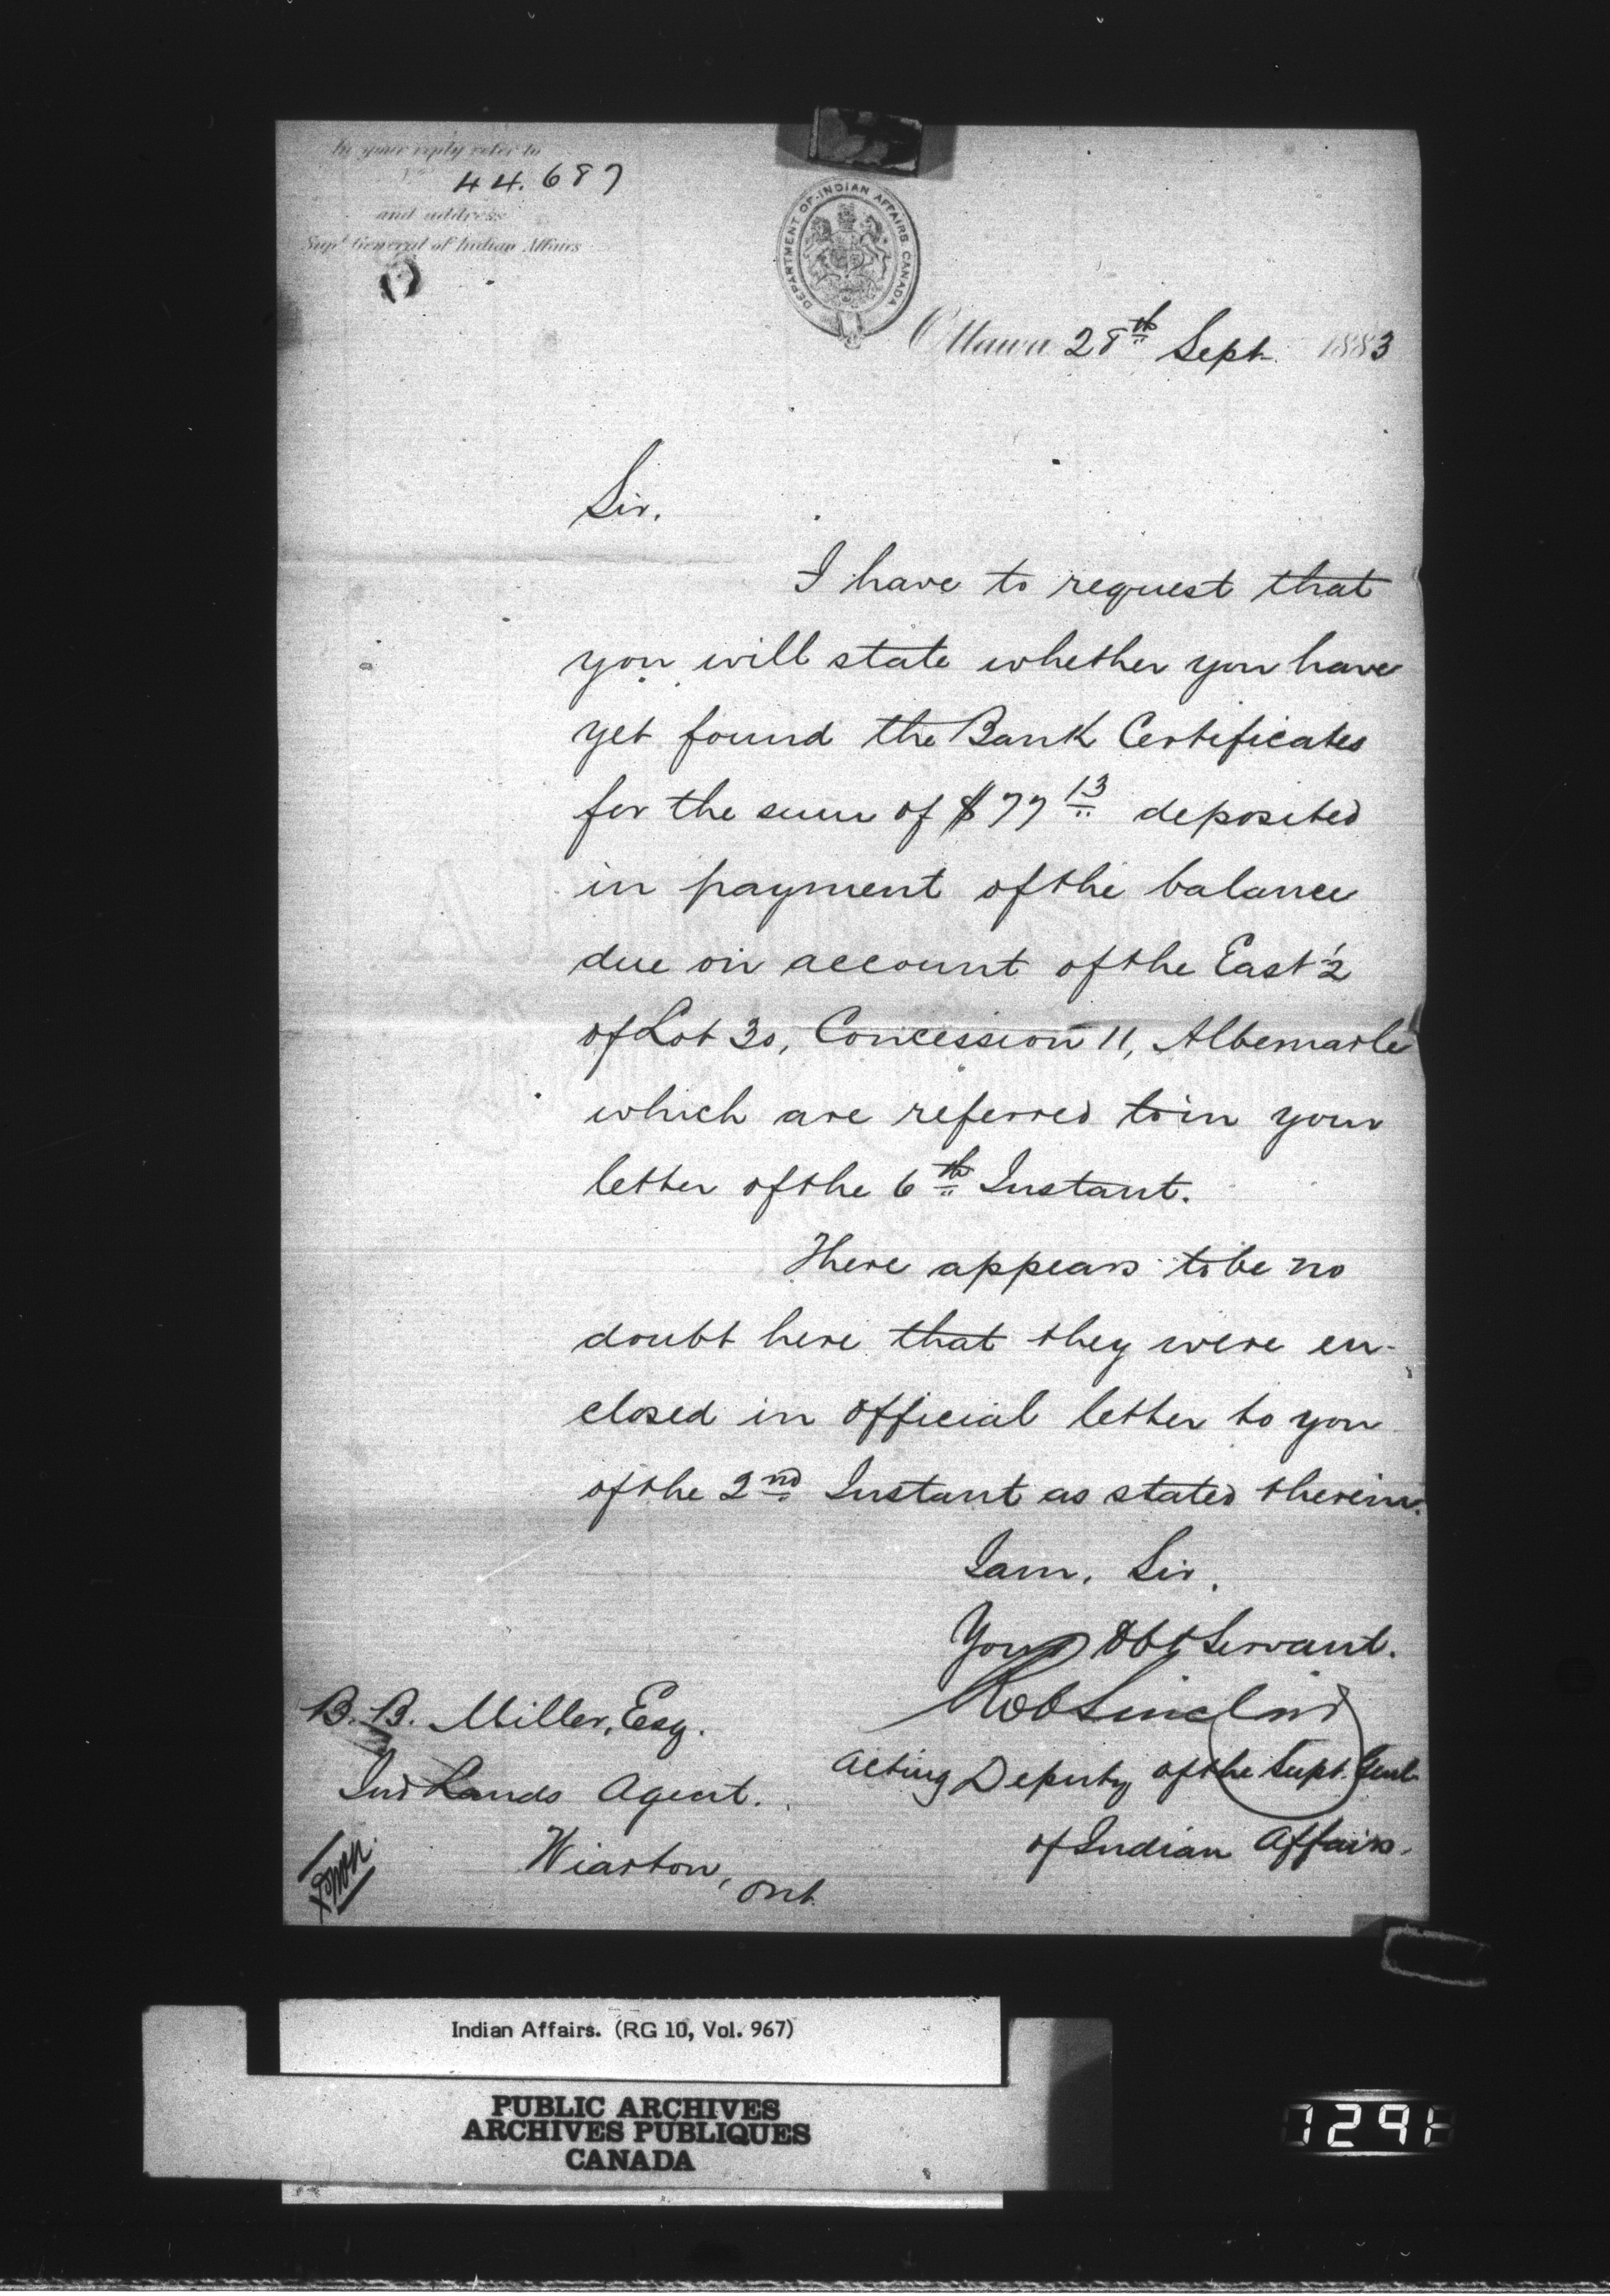 In your reply refer to
44.687
and address
Supt General of Indian Affairs
DEPARTMENT OF INDIAN AFFAIRS CANADA
Ottawa 28th Sept. 1883
Sir.
I have to request that
you will state whether you have
yet found the Bank Certificates
for the sum of $77 13 deposited
in payment of the balance
due on account of the East 1/2
of Lot 30, Concession 11, Albemarle
which are referred to in your
letter of the 6th Instant.
There appears to be no
doubt here that they were en-
closed in official letter to you
of the 2nd Instant as stated therein.
I am, Sir,
Your Obt Servant.
Rob Sinclair
Acting Deputy of the Supt. Genl
of Indian Affairs.
B. B. Miller, Esq.
Ind Lands Agent.
Wiarton, Ont.
Indian Affairs. (RG 10, Vol. 967)
PUBLIC ARCHIVES
ARCHIVES PUBLIQUES
CANADA